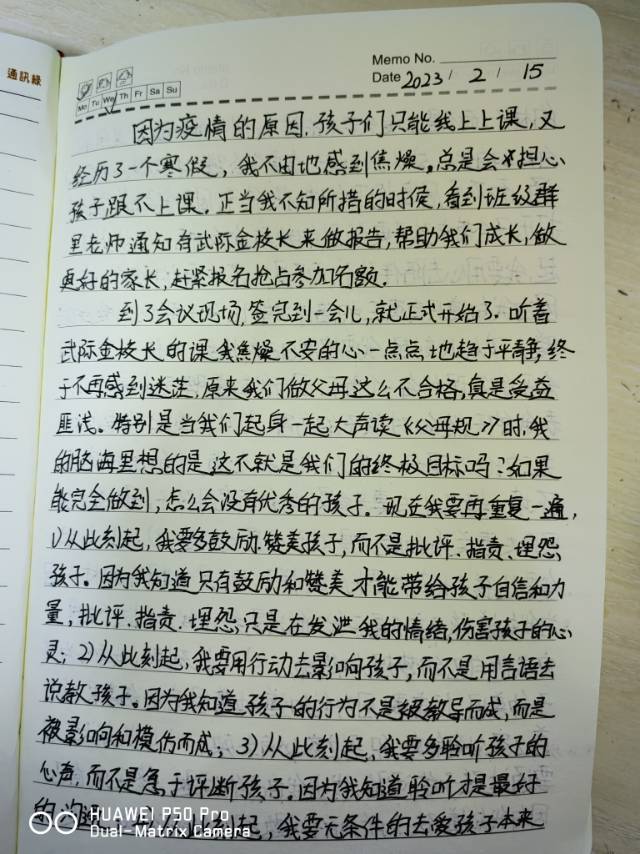 通訊錄
Memo No.
Mo Tu We Th Fr Sa Su
Date 2023 / 2 / 15
因为疫情的原因,孩子们只能线上上课,又
经历了一个寒假,我不由地感到焦燥。总是会担心
孩子跟不上课。正当我不知所措的时候,看到班级群
里老师通知有武际金校长来做报告,帮助我们成长,做
更好的家长,赶紧报名抢占参加名额.
到了会议现场,签完到一会儿,就正式开始了.听着
武际金校长的课我焦燥不安的心一点点地趋于平静,终
于不再感到迷茫,原来我们做父母这么不合格,真是受益
匪浅。特别是当我们起身一起大声读《父母规》时,我
的脑海里想的是这不就是我们的终极目标吗?如果
能完全做到,怎么会没有优秀的孩子。现在我要再重复一遍,
1)从此刻起,我要多鼓励.赞美孩子,而不是批评.指责.埋怨
孩子。因为我知道只有鼓励和赞美才能带给孩子自信和力
量,批评.指责.埋怨只是在发泄我的情绪,伤害孩子的心
灵;2)从此刻起,我要用行动去影响孩子,而不是用言语去
说教孩子。因为我知道孩子的行为不是被教导而成,而是
被影响和模仿而成;3)从此刻起,我要多聆听孩子的
心声,而不是急于评断孩子。因为我知道聆听才是最好
的沟通 从此刻起,我要无条件的去爱孩子本来
HUAWEI P50 Pro
Dual-Matrix Camera